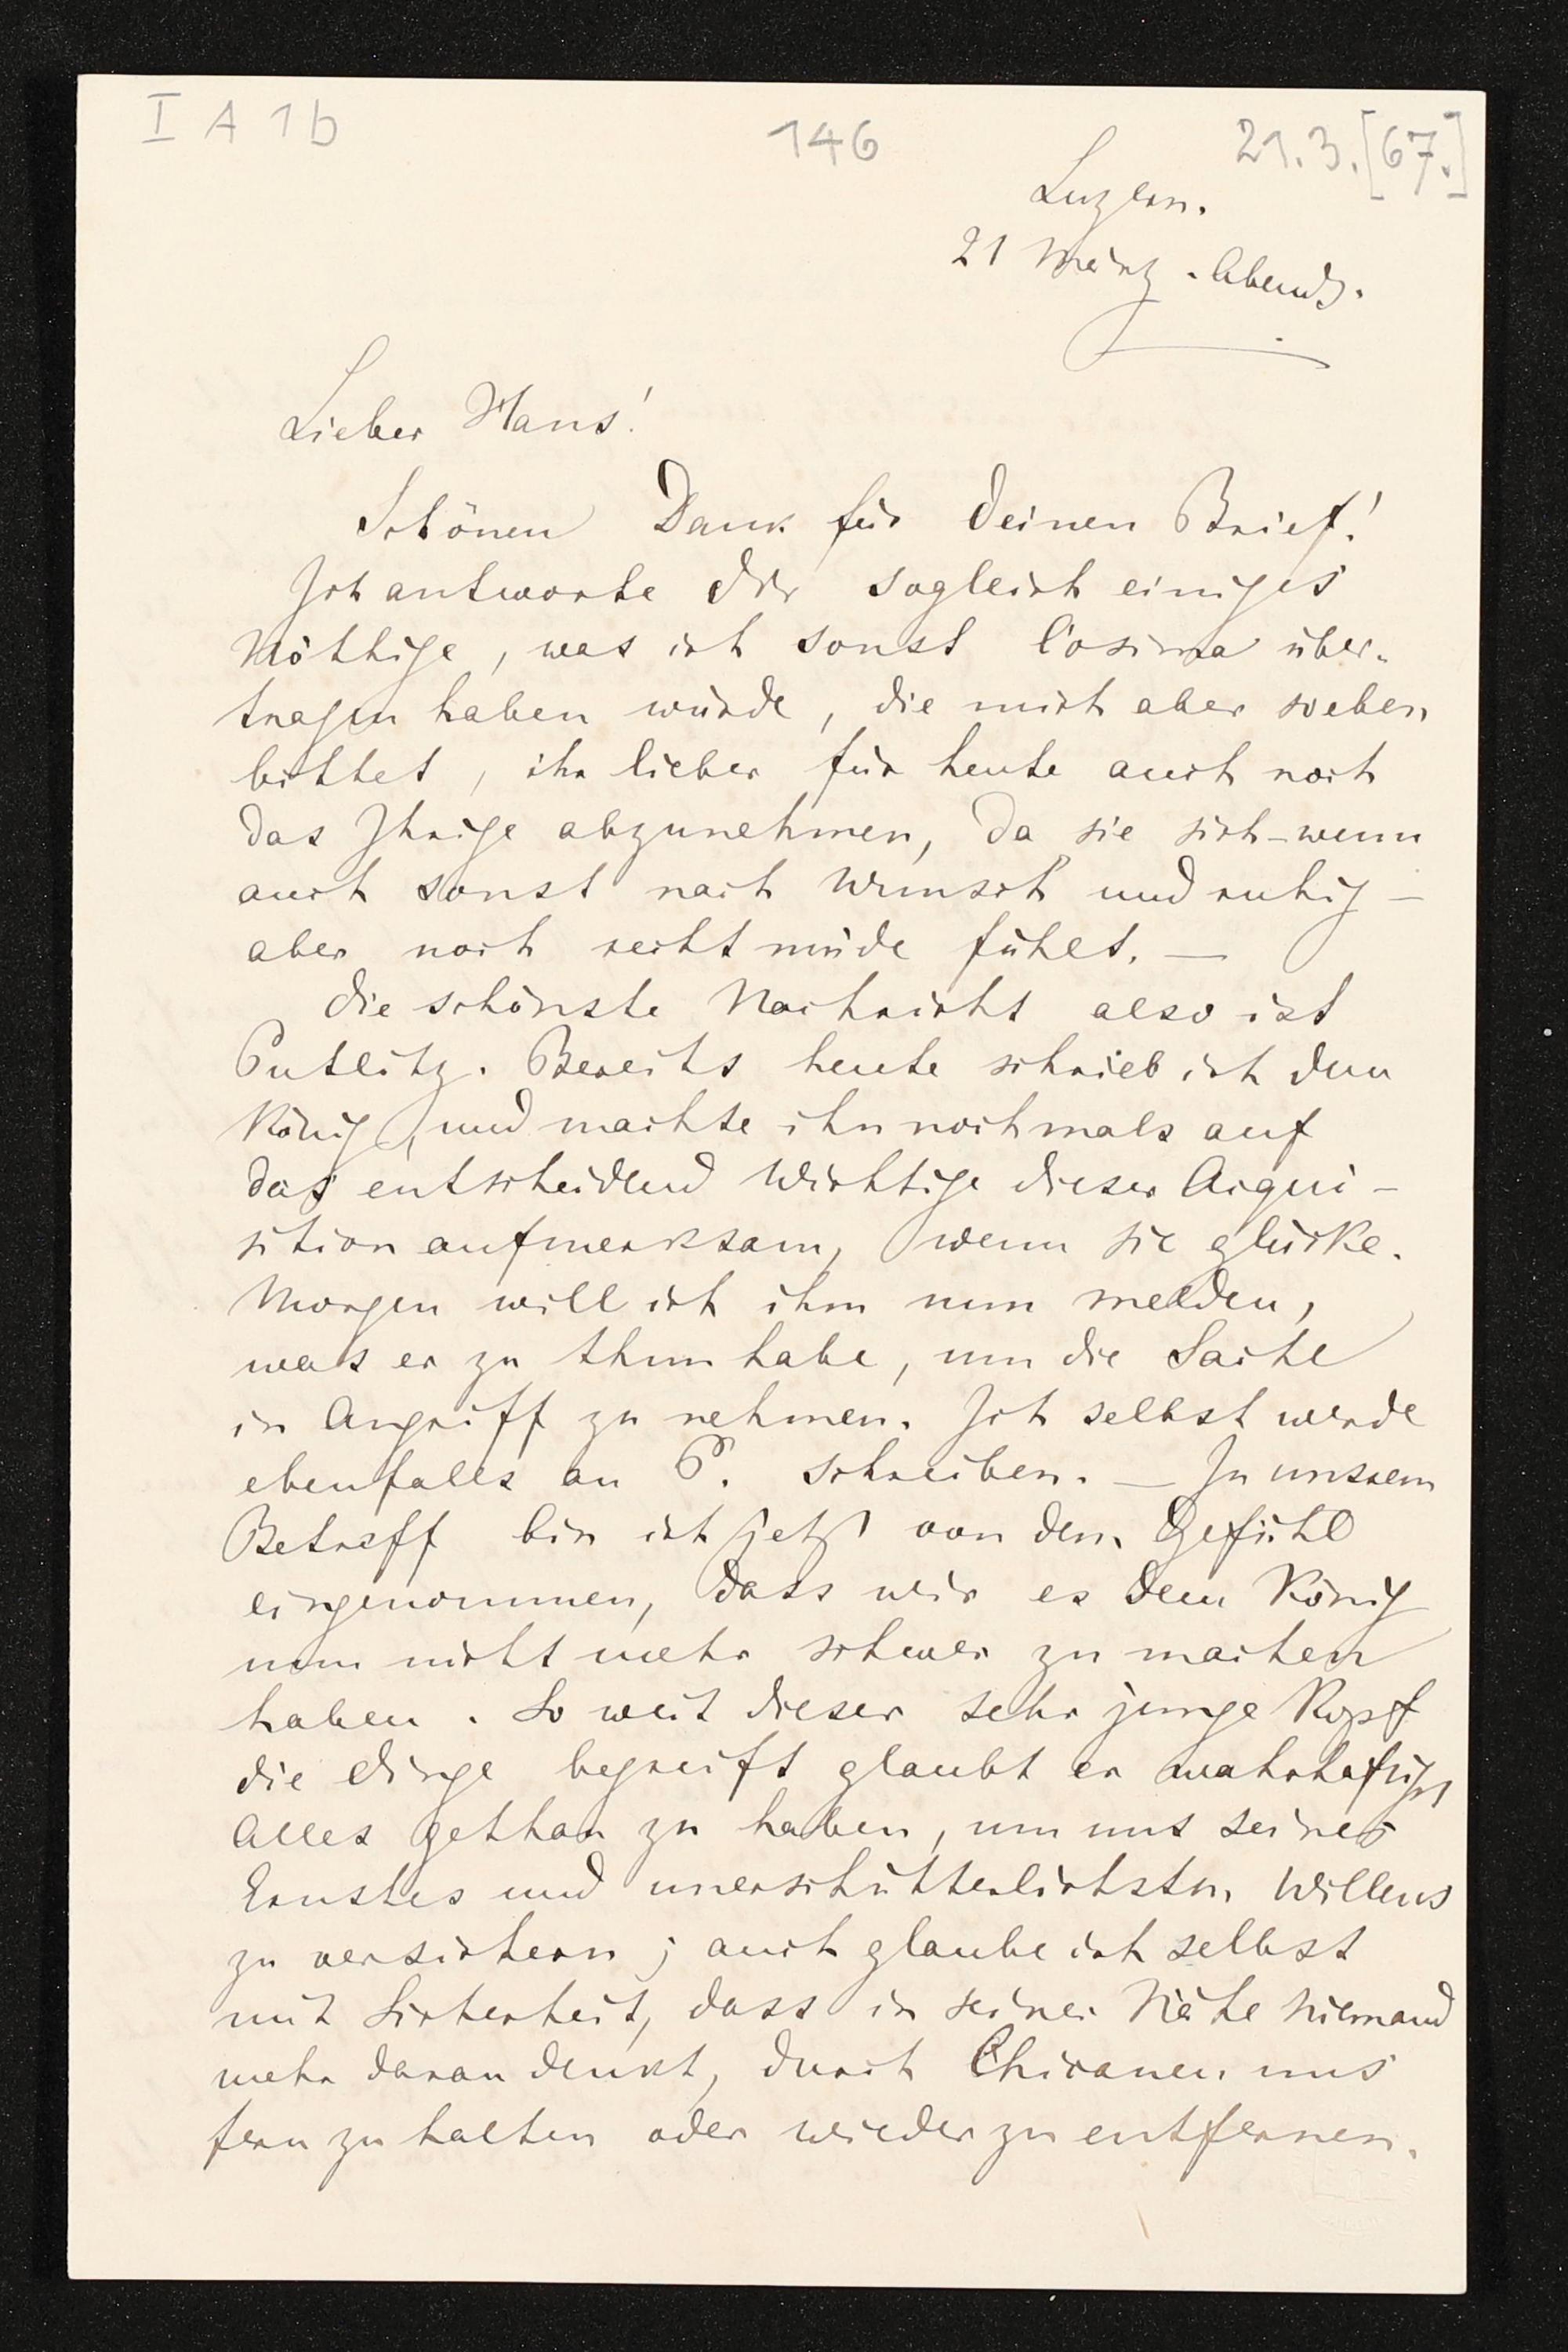 I A 1b
146
21.3.[67.]
Luzern.
21 März. Abends.
Lieber Hans!
Schönen Dank für Deinen Brief!
Ich antworte Dir sogleich einiges
Nöthige, was ich sonst Cosima über-
tragen haben würde, die mich aber soeben
bittet, ihr lieber für heute auch noch
das Ihrige abzunehmen, da sie sich – wenn
auch sonst nach Wunsch und ruhig –
aber noch recht müde fühlt. —
Die schönste Nachricht also ist
Putlitz. Bereits heute schrieb ich dem
König, und machte ihn nochmals auf
das entscheidend Wichtige dieser Acqui-
sition aufmerksam, wenn sie glücke.
Morgen will ich ihm nun melden,
was er zu thun habe, um die Sache
in Angriff zu nehmen. Ich selbst werde
ebenfalls an P. schreiben. — In unsrem
Betreff bin ich jetzt von dem Gefühl
eingenommen, dass wir es dem König
nun nicht mehr schwer zu machen
haben. So weit dieser sehr junge Kopf
die Dinge begreift glaubt er wahrhaftigst
Alles gethan zu haben, um uns seines
Ernstes und unerschütterlichsten Willens
zu versichern; auch glaube ich selbst
mit Sicherheit, dass in seiner Nähe Niemand
mehr daran denkt, durch Chicanen uns
fern zu halten oder wieder zu entfernen.